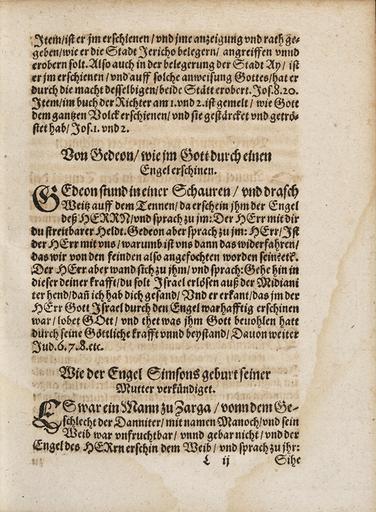 Item/ist er jm erschienen/vnd jme anzeigung vnd rath ge-
geben/wie er die Stadt Jericho belegern/ angreiffen vnnd
erobern solt. Also auch in der belegerung der Stadt Ay/ ist
er jm erschienen/vnd auff solche anweisung Gottes/hat er
durch die macht desselbigen/beide Stätt erobert. Jos.8.20.
Item/im buch der Richter am 1.vnd 2.ist gemelt/ wie Gott
dem gantzen Volck erschienen/ vnd sie gestärcket vnd getrö-
stet hab/ Jos.1. vnd 2.
Von Gedeon/ wie jm Gott durch einen
Engel erschinen.
GEdeon stund in einer Schauren / vnd drasch
Weitz auff dem Tennen/da erschein jhm der Engel
deß HERRN/vnd sprach zu jm: Der HErr mit dir
du streitbarer Heldt. Gedeon aber sprach zu jm: HErr/Ist
der HErr mit vns/ warumb ist vns dann das widerfahren/
das wir von den feinden also angefochten worden sein?etc.
Der HErr aber wand sich zu jhm/ vnd sprach: Gehe hin in
dieser deiner krafft/du solt Israel erlösen auß der Midiani
ter hend/daß ich hab dich gesand/ Vnd er erkant/das jm der
HErr Gott Israel durch den Engel warhafftig erschinen
war/ lobet GOtt / vnd thet was jhm Gott beuohlen hatt
durch seine Göttliche krafft vnnd beystand/ Dauon weiter
Jud.6.7.8.etc.
Wie der Engel Simsons geburt seiner
Mutter verkündiget.
ES war ein Mann zu Zarga / vonn dem Ge-
schlecht der Danniter/ mit namen Manoch/vnd sein
Weib war vnfruchtbar/ vnnd gebar nicht/vnd der
Engel des HErrn erschin dem Weib / vnd sprach zu jhr:
L ij Sihe